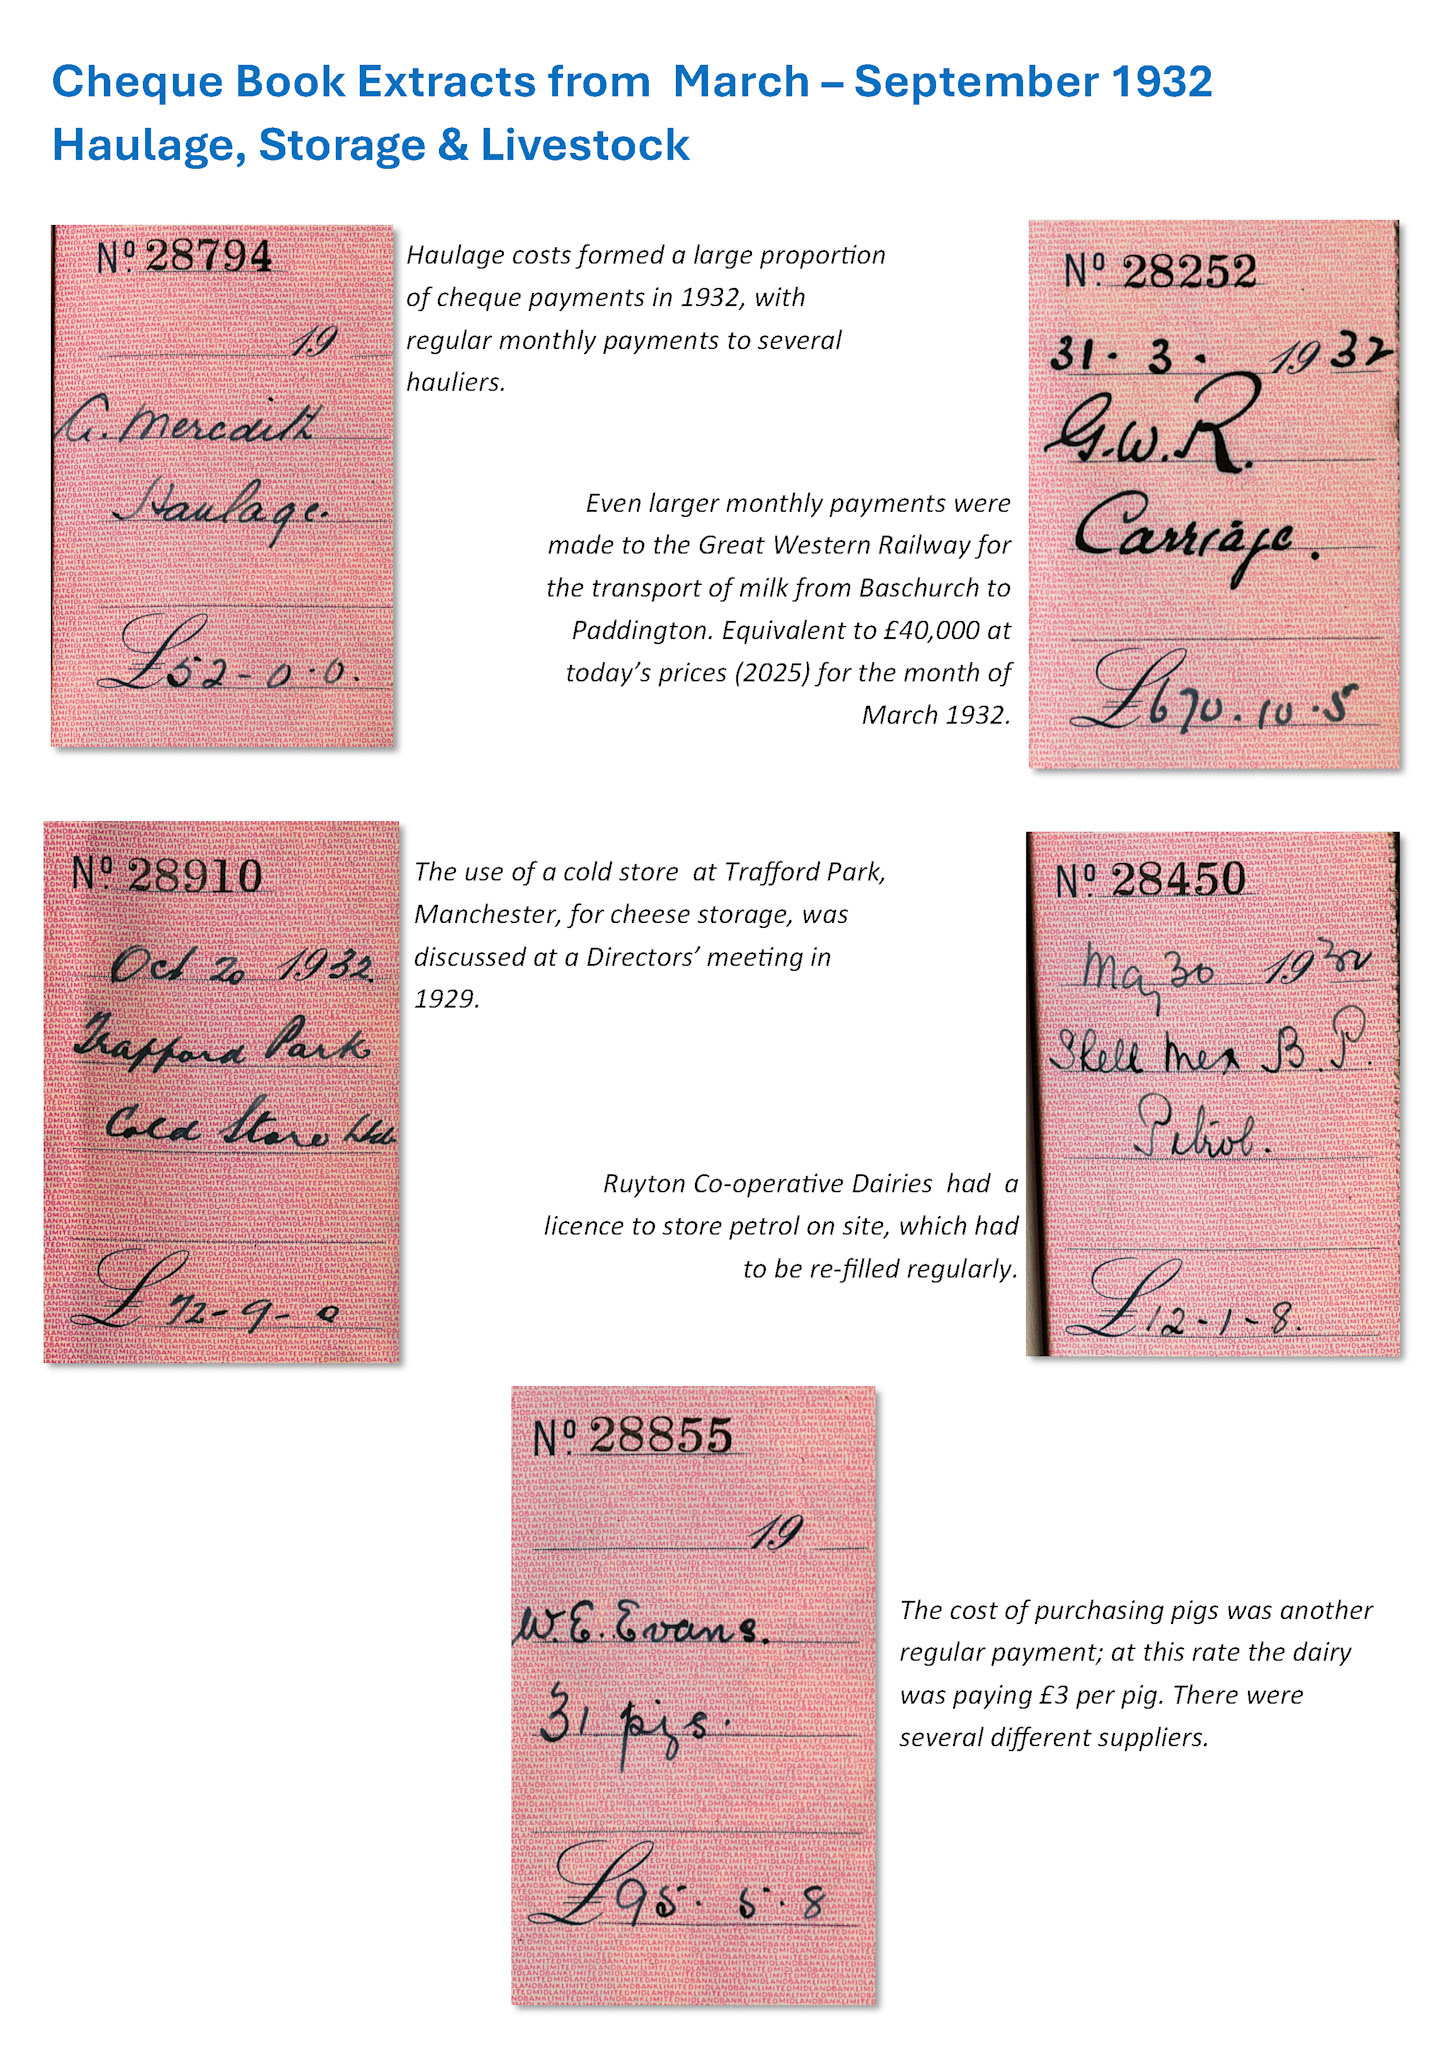 Cheque Book Extracts from March – September 1932
Haulage, Storage & Livestock
Nº 28794
19
A. Meredith
Haulage.
£52-0-0.
Haulage costs formed a large proportion
of cheque payments in 1932, with
regular monthly payments to several
hauliers.
Nº 28252
31. 3. 1932
G.W.R.
Carriage.
£670.10.5
Even larger monthly payments were
made to the Great Western Railway for
the transport of milk from Baschurch to
Paddington. Equivalent to £40,000 at
today's prices (2025) for the month of
March 1932.
Nº 28910
Oct 20 1932
Trafford Park
Cold Store Ltd
£72-9-0
The use of a cold store at Trafford Park,
Manchester, for cheese storage, was
discussed at a Directors' meeting in
1929.
Nº 28450
May 30 1932
Shell Mex B.P.
Petrol.
£12-1-8.
Ruyton Co-operative Dairies had a
licence to store petrol on site, which had
to be re-filled regularly.
Nº 28855
19
W.E. Evans.
31 pigs.
£95.5.8
The cost of purchasing pigs was another
regular payment; at this rate the dairy
was paying £3 per pig. There were
several different suppliers.